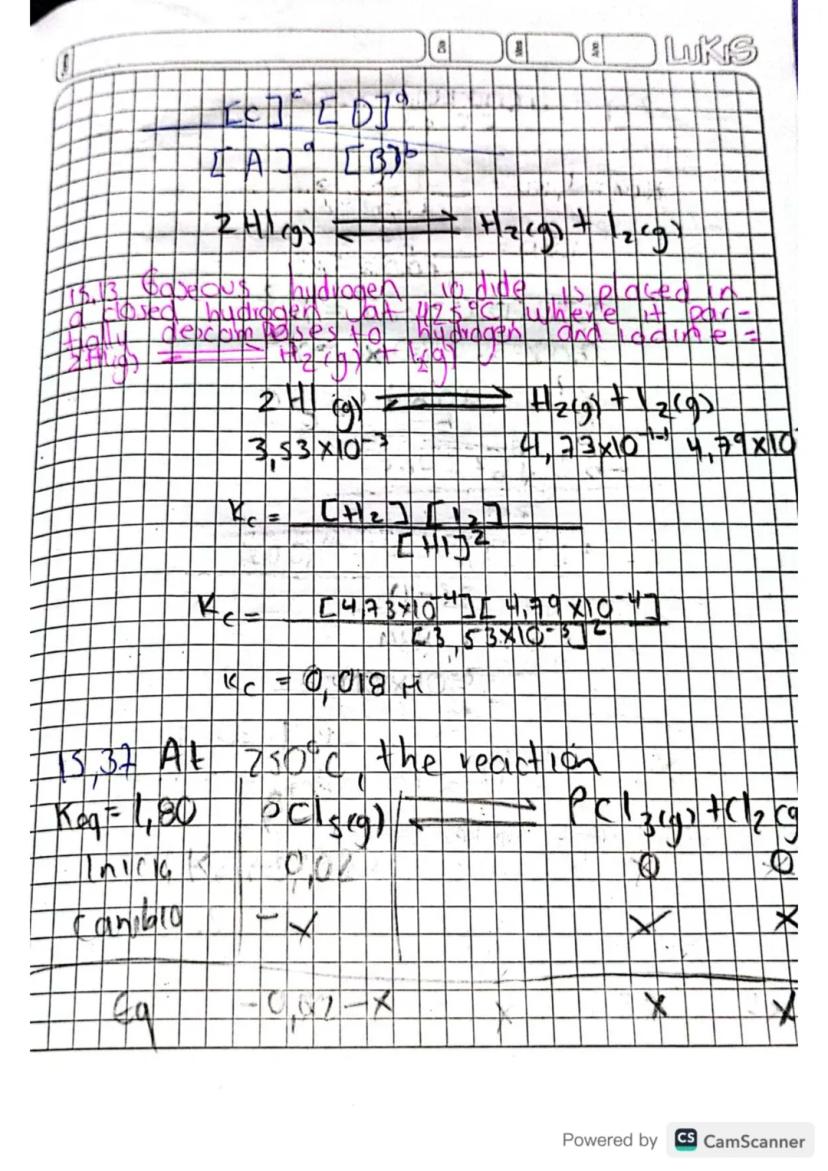 Día Mes Año LUKIS
[C]ᶜ [D]ᵈ
[A]ᵃ [B]ᵇ
2HI(g) ⇌ H₂(g) + I₂(g)
15.13 Gaseous hydrogen iodide is placed in
a closed hydrogen at 425°C where it par-
tially descomposes to hydrogen and iodine =
2HI(g) ⇌ H₂(g) + I₂(g)
2HI(g) ⇌ H₂(g) + I₂(g)
3,53x10⁻³ 4,73x10 4,79x10
Kc = [H₂] [I₂]
[HI]²
Kc = [4,73x10⁻⁴][4,79x10⁻⁴]
[3,53x10⁻³]²
Kc = 0,018 M
15,37 At 250°C, the reaction
Keq = 1,80 PCl₅(g) ⇌ PCl₃(g) + Cl₂(g
Inicia 0 0
Cambio -x x x
Eq x x
Powered by CS CamScanner